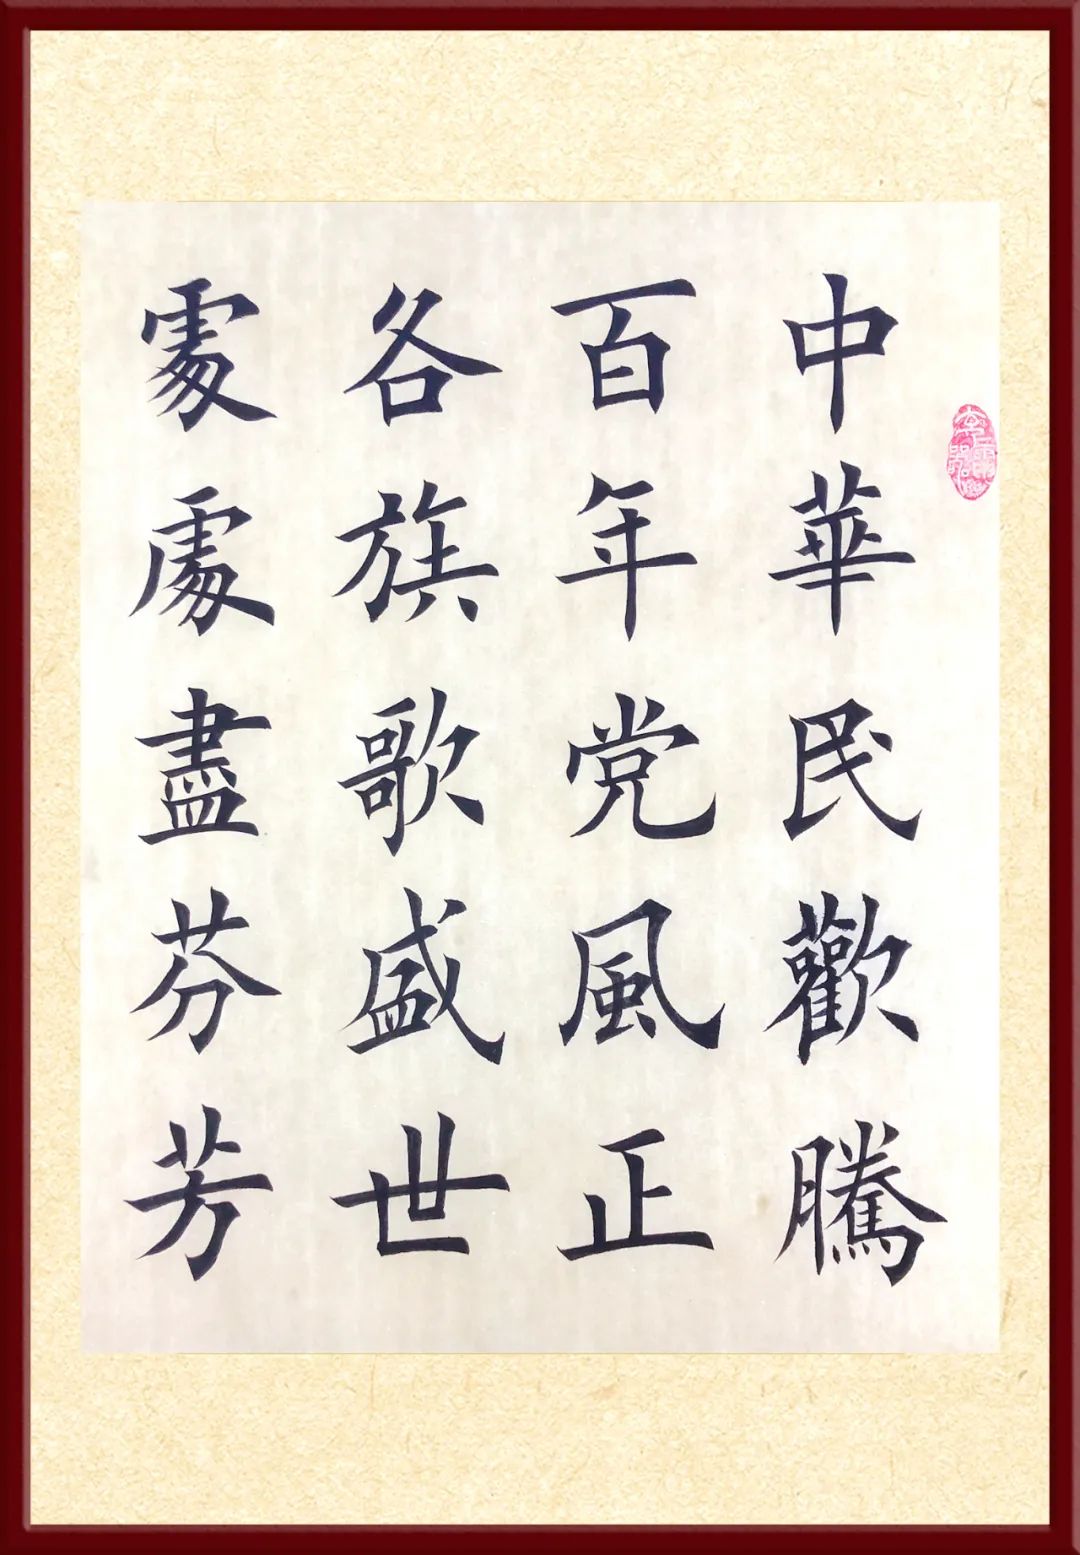 中華民歡騰
百年党風正
各族歌盛世
處處盡芬芳